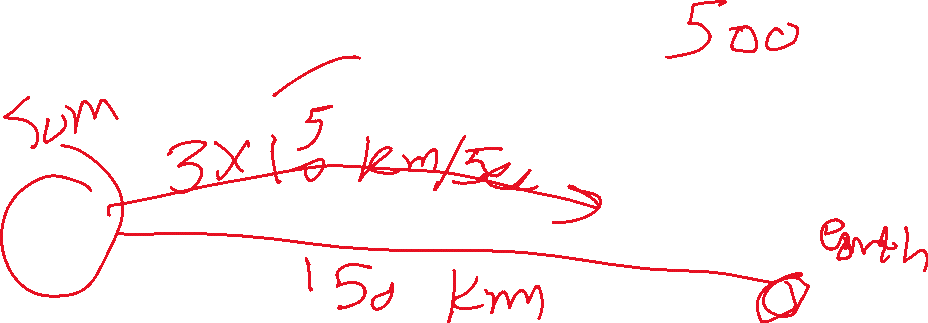 500
Sum
3×10⁵ km/sec
earth
150 km